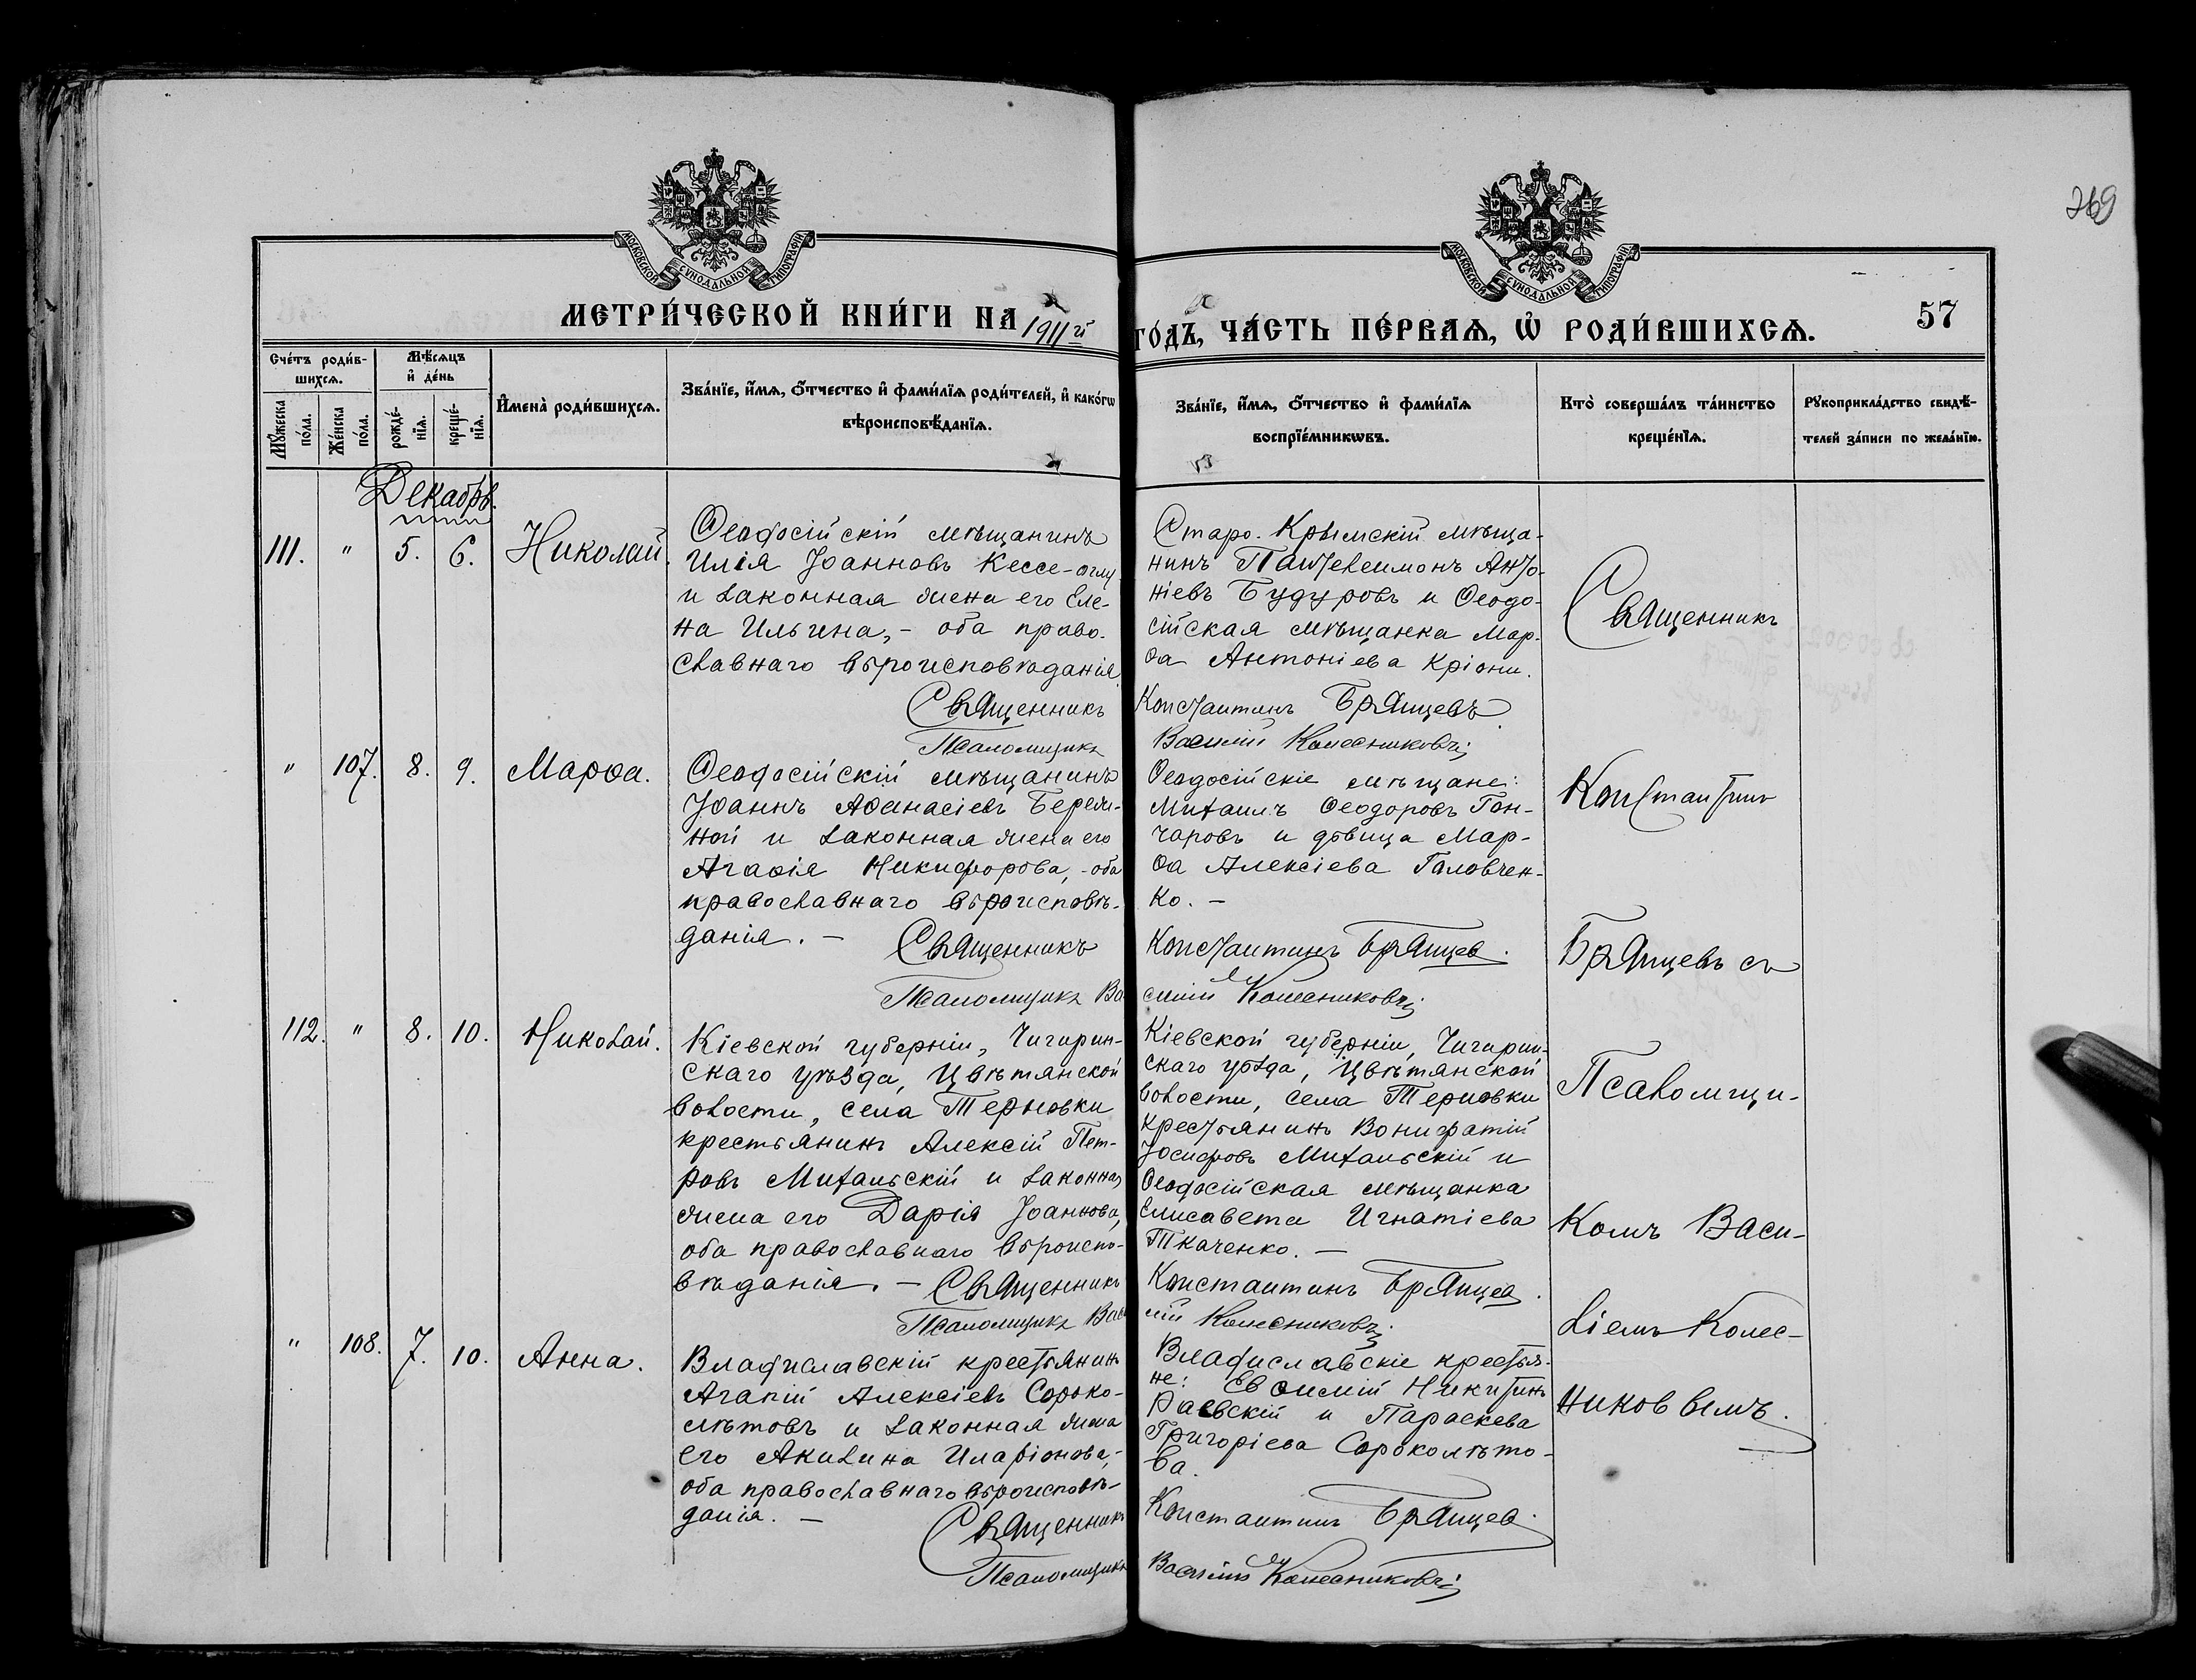 269
МОСКОВСКОЙ СѴНОДАЛЬНОЙ ТИПОГРАФІИ
МОСКОВСКОЙ СѴНОДАЛЬНОЙ ТИПОГРАФІИ
МЕТРИ́ЧЕСКОЙ КНИ́ГИ НА 1911 й
ГО́ДЪ, ЧА́СТЬ ПЕ́РВАѦ, Ѡ҆ РОДИ́ВШИХСѦ. 57
Сче́тъ роди́в-
шихсѧ.
Мꙋжеска
по́ла.
Же́нска
по́ла.
Мѣ́сѧцъ
и҆ де́нь
рожде́-
нїѧ.
креще́-
нїѧ.
И҆мена̀ роди́вшихсѧ.
Зва́нїе, и҆́мѧ, ѻ҆́тчество и҆ фами́лїѧ роди́телей, и҆ како́гѡ
вѣроисповѣ́данїѧ.
Зва́нїе, и҆́мѧ, ѻ҆́тчество и҆ фами́лїѧ
воспрїе́мникѡвъ.
Кто̀ соверша́лъ та́инство
креще́нїѧ.
Рꙋкоприкла́дство свидѣ́-
телей за́писи по жела́нїю.
Декабрь.
111. " 5. 6. Николай.
Ѳеодосійскій мѣщанинъ
Илія Іоанновъ Кессе-оглу
и законная жена его Еле-
на Ильина, - оба право-
славнаго вѣроисповѣданія
Священникъ
Псаломщикъ
Старо-Крымскій мѣща-
нинъ Пантелеимонъ Анто-
ніевъ Будуровъ и Ѳеодо-
сійская мѣщанка Мар-
ѳа Антоніева Кріони.
Константинъ Брянцевъ
Василій Колесниковъ
" 107. 8. 9. Марѳа.
Ѳеодосійскій мѣщанинъ
Іоаннъ Аѳанасіевъ Береж-
ной и законная жена его
Агаѳія Никифорова, - оба
православнаго вѣроисповѣ-
данія. - Священникъ
Псаломщикъ Ва
Ѳеодосійскіе мѣщане:
Михаилъ Ѳеодоровъ Гон-
чаровъ и дѣвица Мар-
ѳа Алексіева Головчен-
ко. -
Константинъ Брянцев.
силій Колесниковъ
112. " 8. 10. Николай.
Кіевской губерніи, Чигирин-
скаго уѣзда, Цвѣтянской
волости, села Терновки
крестьянинъ Алексій Пет-
ровъ Михальскій и законная
жена его Дарія Іоаннова,
оба православнаго вѣроиспо-
вѣданія. - Священникъ
Псаломщикъ Васи
Кіевской губерніи, Чигирин-
скаго уѣзда, Цвѣтянской
волости, села Терновки
крестьянинъ Вонифатій
Іосифовъ Михальскій и
Ѳеодосійская мѣщанка
Елисавета Игнатіева
Ткаченко. -
Константинъ Брянцев.
лій Колесниковъ
" 108. 7. 10. Анна.
Владиславскій крестьянинъ
Агапій Алексіевъ Сороко-
лѣтовъ и законная жена
его Акилина Иларіонова,-
оба православнаго вѣроисповѣ-
данія. -
Священникъ
Псаломщикъ
Владиславскіе крестья-
не: Евѳимій Никитинъ
Раевскій и Параскева
Григоріева Сороколѣто-
ва.
Константинъ Брянцев.
Василій Колесниковъ
Священникъ
Константинъ
Брянцевъ съ
Псаломщи-
комъ Васи-
ліемъ Колес-
никовымъ.